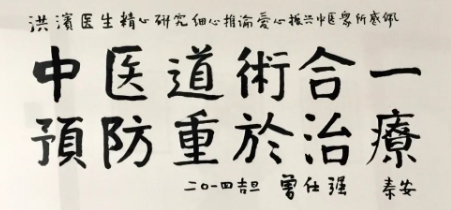 洪濱医生精心研究细心推论爱心振兴中医眾所感佩
中医道術合一
預防重於治療
二〇一四 曾仕强 秦安